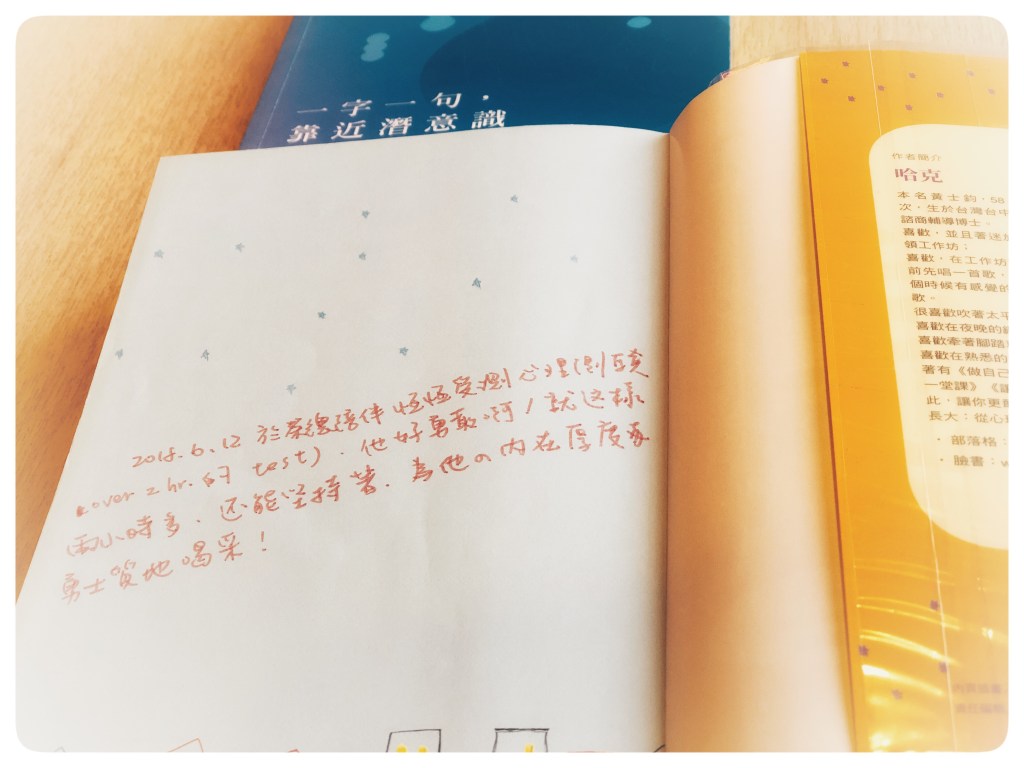 一字一句，
靠近潛意識
2018.6.12 於榮總陪伴恆恆受測心理測驗
(over 2 hr. 的 test). 他好勇敢啊！就这樣
兩小時多. 还能坚持著. 為他の内在厚度和
勇士質地喝采！
作者簡介
哈克
本名黃士鈞，58
次，生於台灣台中
諮商輔導博士。
喜歡，並且著迷於
領工作坊；
喜歡，在工作坊
前先唱一首歌，
個時候有感覺的
歌。
很喜歡吹著太平
喜歡在夜晚的
喜歡牽著腳踏
喜歡在熟悉的
著有《做自己
一堂課》《
此，讓你更
長大：從心
．部落格：
．臉書：w